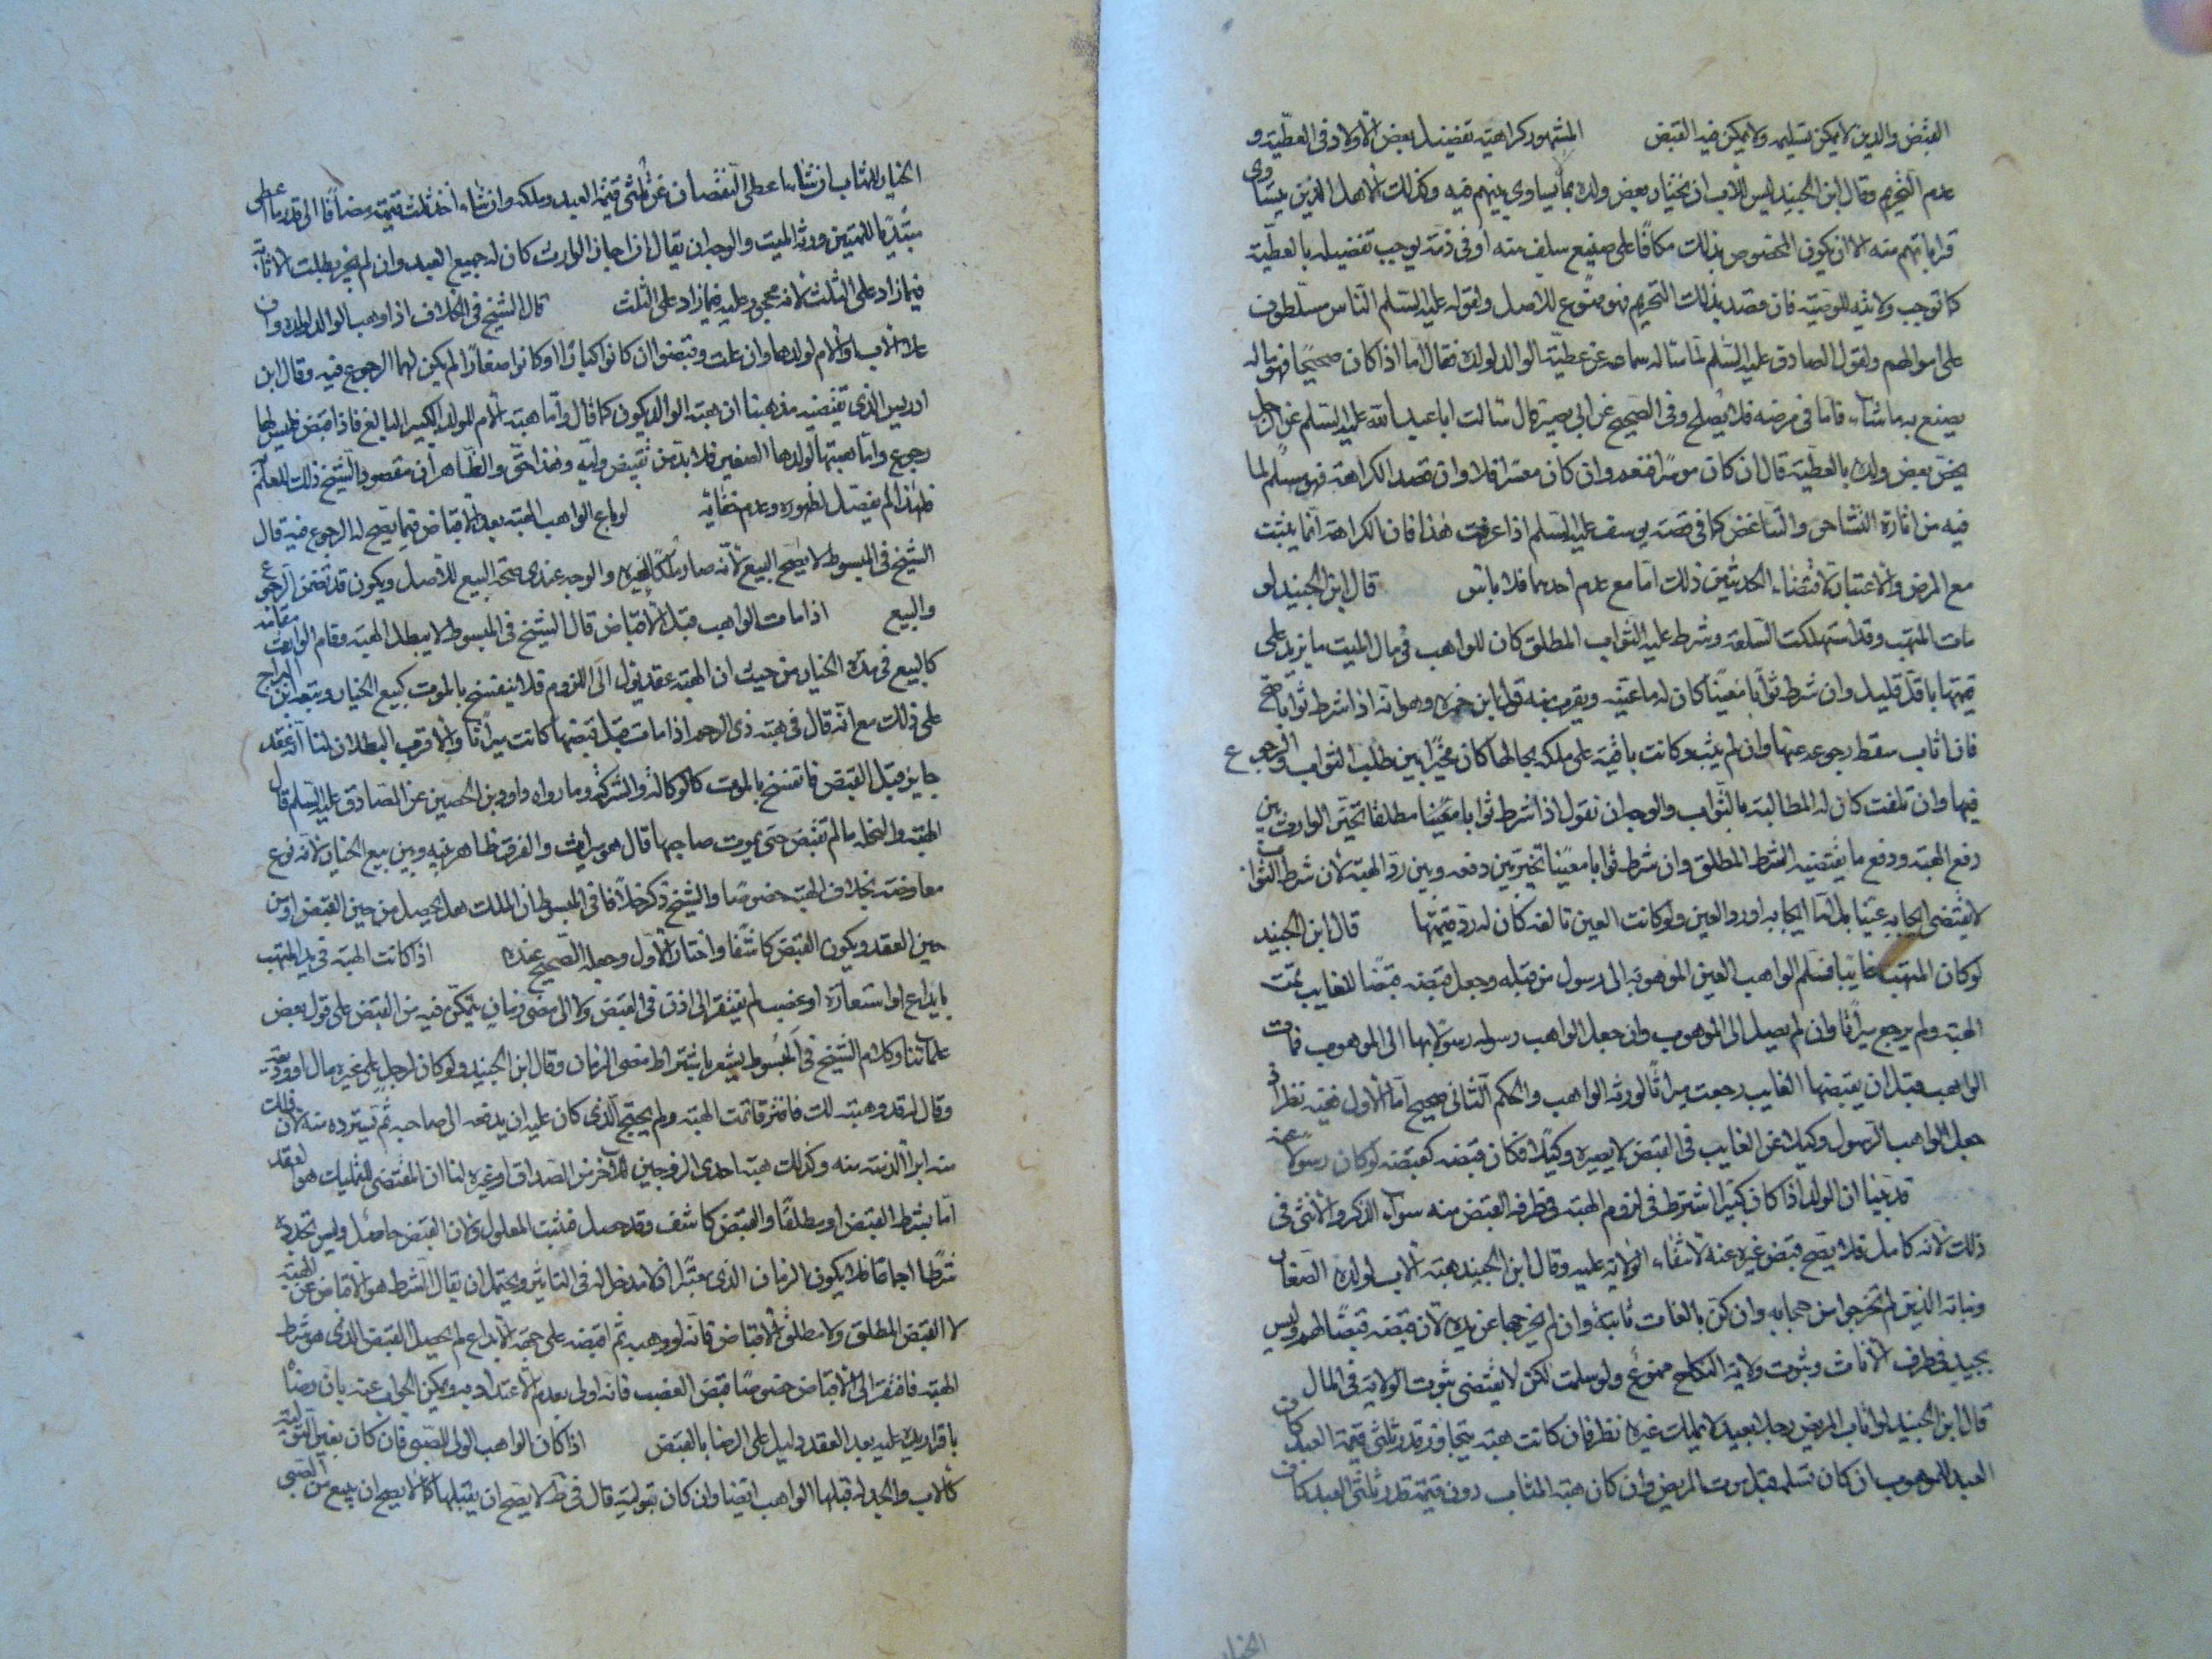 القبض والدين لا يمكن تسليمه ولا يمكن فيه القبض المشهور كراهية تفضيل بعض الاولاد في العطية و
عدم التحريم وقال ابن الجنيد ليس للاب ان يختار بعض ولده بما يساوي بينهم فيه وكذلك الاهل الذين يتساوى
قراباتهم منه الا ان يكون المخصوص بذلك مكافا على صنيع سلف منه او في ذمة يوجب تفضيله بالعطية
كما توجب ولايته للوصية فان قصد بذلك التحريم فهو ممنوع للاصل ولقوله عليه السلم الناس مسلطون
على اموالهم ولقول الصادق عليه السلم لما ساله سماعه عن عطية الوالد لولده فقال اما اذا كان صحيحا فهو ماله
يصنع به ما شاء فاما في مرضه فلا يصلح وفي الصحيح عن ابي بصير قال سالت ابا عبد الله عليه السلم عن الرجل
يخص بعض ولده بالعطية قال ان كان موسرا فنعم وان كان معسرا فلا وان قصد الكراهة فهو مسلم لما
فيه من اثارة التشاحن والتباغض كما في قصة يوسف عليه السلم اذا عرفت هذا فان الكراهة انما يثبت
مع المرض والاعتبار لاقتضاء الحديثين ذلك اما مع عدم احدهما فلا باس قال ابن الجنيد لو
مات المتهب وقد استهلكت السلعة وشرط عليه الثواب المطلق كان للواهب في مال الميت ما يزيد على
قيمتها باقل قليل وان شرط ثوابا معينا كان له ما عينه ويقرب منه قول ابن حمزه وهو انه اذا شرط ثوابا صح
فان اثاب سقط رجوعه عنها وان لم يثب وكانت باقية على ملكه بحالها كان مخيرا بين طلب الثواب والرجوع
فيها وان تلفت كان له المطالبة بالثواب والوجه ان نقول اذا شرط ثوابا معينا مطلقا تخير الوارث بين
دفع الهبة ودفع ما يقتضيه الشرط المطلق وان شرط ثوابا معينا تخير بين دفعه وبين رد الهبة لان شرط الثواب
لا يقتضي ايجابه عينا بل اما ايجابه او رد العين ولو كانت العين تالفه كان له رد قيمتها قال ابن الجنيد
لو كان المتهب غايبا فسلم الواهب العين الموهوبة الى رسول من قبله وجعل قبضه قبضا للغايب تمت
الهبة ولم يرجع ميراثا وان لم يصل الى الموهوب وان جعل الواهب رسوله رسولا بها الى الموهوب فمات
الواهب قبل ان يقبضها الغايب رجعت ميراثا لورثة الواهب والحكم الثاني صحيح اما الاول ففيه نظر لان
جعل الواهب الرسول وكيلا عن الغايب في القبض لا يصيره وكيلا فكان قبضه كقبضه لو كان رسولا عنه
قد بينا ان الولد اذا كان كبيرا اشترط في لزوم الهبة في طرفه القبض منه سواء الذكر والانثى في
ذلك لانه كامل فلا يصح قبض غيره عنه لانتفاء الولاية عليه وقال ابن الجنيد هبة الاب لولده الصغار
وبناته الذين لم تخرجوا من حجابه وان كن بالغات ثابتة وان لم يخرجها عن يده لان قبضه قبضا لهم وليس
بجيد في طرف الاناث وثبوت ولاية النكاح ممنوع ولو سلمت لكن لا يقتضي ثبوت الولاية في المال
قال ابن الجنيد لو اثاب المريض رجلا بعبد لا يملك غيره نظر فان كانت هبة يتجاوز قدر ثلثي قيمة العبد كان
العبد للموهوب ان كان تسلمه قبل موت المريض وان كان هبة المثاب دون قيمة قدر ثلثي العبد كان
الخيار
الخيار للمثاب ان شاء اعطى النقصان عن ثلثي قيمة العبد وملكه وان شاء اخذ ثلث قيمته مضافا الى قدر ما اعطى
مبتديا للميتين ورثه الميت والوجه ان يقال ان اجاز الوارث كان له جميع العبد وان لم يجز بطلت الاثابة
فيما زاد على الثلث لانه محجور عليه فيما زاد على الثلث قال الشيخ في الخلاف اذا وهب الوالد لولده وان
علا والاب والام لولدهما وان علت وقبضوا ان كانوا كبارا او كانوا صغارا لم يكن لهما الرجوع فيه وقال ابن
ادريس الذي تقتضيه مذهبنا ان هبة الوالد يكون كما قال واما هبة الام للولد الكبير البالغ فاذا قبض فليس لها
رجوع واما هبتها لولدها الصغير فلا بد من تقبيض وليه وهذا حق والظاهر ان مقصود الشيخ ذلك للعلم
فلهذا لم يفصل لظهوره وعدم خفائه لو باع الواهب الهبة بعد الاقباض فيما يصح له الرجوع فيه قال
الشيخ في المبسوط لا يصح البيع لانه صار ملكا لغيره والوجه عندي صحة البيع للاصل ويكون قد تضمن الرجوع
والبيع اذا مات الواهب قبل الاقباض قال الشيخ في المبسوط لا يبطل الهبة وقام الوارث مقامه
كالبيع في مدة الخيار من حيث ان الهبة عقد يؤل الى اللزوم فلا ينفسخ بالموت كبيع الخيار وتبعه ابن البراج
على ذلك مع انه قال في هبة ذي الرحم اذا مات قبل قبضها كانت ميراثا والاقرب البطلان لنا انه عقد
جايز قبل القبض فانفسخ بالموت كالوكالة والشركة وما رواه داود بن الحصين عن الصادق عليه السلم قال
الهبة والنحله ما لم تقبض حتى يموت صاحبها قال هو ميراث والفرق ظاهر فيه وبين بيع الخيار لانه نوع
معاوضة بخلاف الهبة خصوصا والشيخ ذكر خلافا في المبسوط ان الملك هل يحصل من حين القبض او من
حين العقد ويكون القبض كاشفا واختار الاول وجعله الصحيح عنده اذا كانت الهبة في يد المتهب
بايداع او استعارة او غصب لم يفتقر الى اذن في القبض ولا الى مضى زمان يتمكن فيه من القبض على قول بعض
علمائنا وكلام الشيخ في المبسوط يشعر باشتراط مضى الزمان وقال ابن الجنيد ولو كان لرجل على غيره مال او وديعة
وقال له قد وهبته لك فاقر قد تمت الهبة ولم يحتج الذي كان عليه ان يدفعه الى صاحبه ثم يسترده منه لان ذلك
منه ابراء لذمته منه وكذلك هبة احدى الزوجين للاخر من الصداق وغيره لنا ان المقتضى للتمليك هو العقد
اما بشرط القبض او مطلقا والقبض كاشف وقد حصل فثبت المعلول ولان القبض حاصل وليس تجدده
شرطا اجماعا فلا يكون الزمان الذي معتبرا فلا مدخل له في التاثير ويحتمل ان يقال الشرط هو الاقباض عن الهبة
لا القبض المطلق ولا مطلق الاقباض فانه لو وهبه ثم اقبضه على جهة الايداع لم يحصل القبض الذي هو شرط
الهبة فافتقر الى الاقباض خصوصا قبض الغصب فانه اولى بعدم الاعتداد به ويمكن الجواب عنه بان رضاه
باقرار يده عليه بعد العقد دليل على الرضا بالقبض اذا كان الواهب الولي للصبي فان كان بغير التولية
كالاب والجد له قبلها الواهب ايضا وان كان بتولية قال في ط لا يصح ان يقبلها كما لا يصح ان يبيع من الصبي